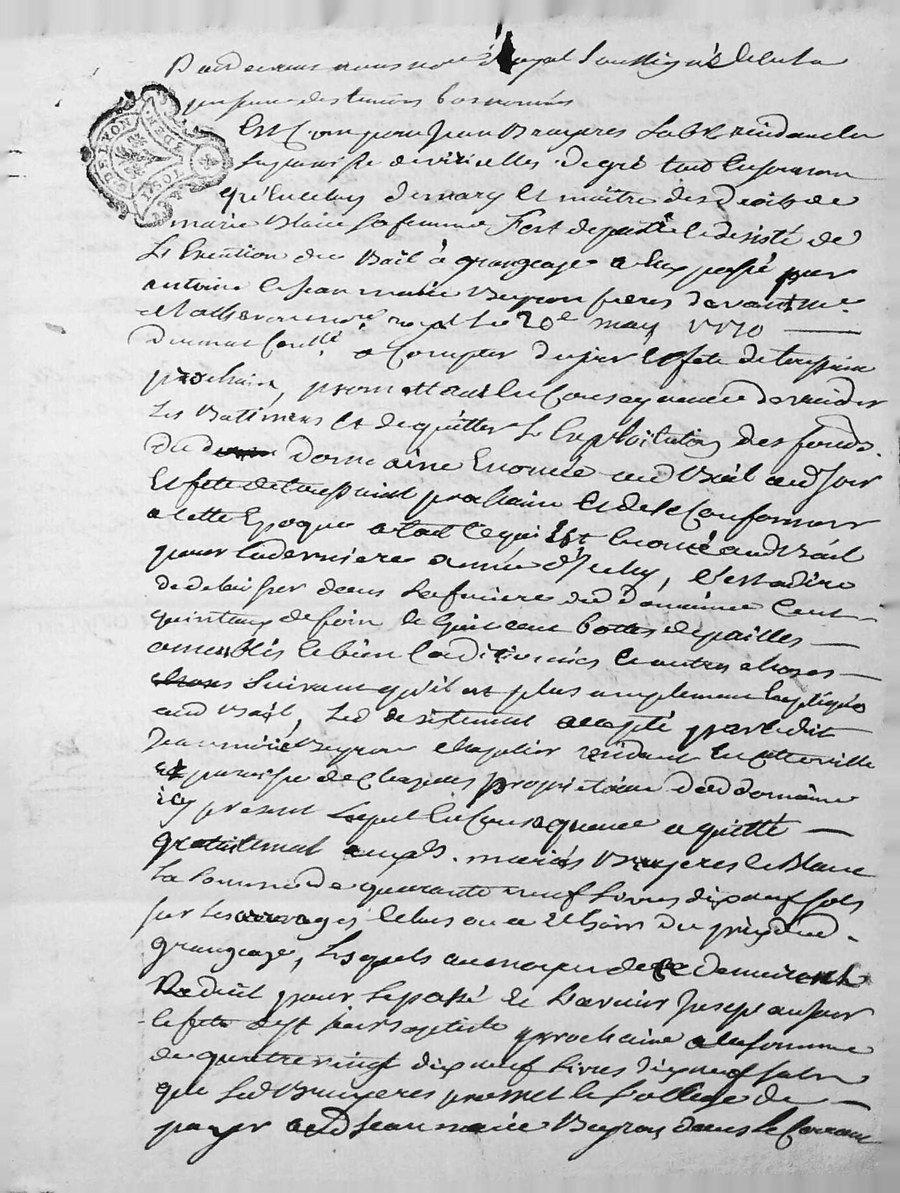 Pardevant nous no.re Royal soussigné & en la
presence des temoins bas nommés
GEN DE LYON
Est comparu Jean Bruyeres habt. residant en
la paroisse de viricelles, de gré tant en son nom
qu'en celuy de mary et maitre des droits de
marie Blanc sa femme s'est departi & desisté de
L'Execution du Bail à grangeage a Eux passé par
antoine & Jean marie Veyron freres devant me.
no.re royal Le 20e. may 1770
duement Conllé. a Compter du jour & fete de toussaint
prochain, promettant en Consequence de vuider
Les Batimens et de quitter L'Exploitation des fonds
du d. Domaine Enoncé aud Bail aud Jour
Et fete de toussaint prochaine et de se Conformer
a cette Epoque a tout ce qui Est Enoncé aud Bail
pour la derniere année d'Iceluy, c'est a dire
de delaisser dans les fenieres dud Domaine Cent
quintaux de foin & huit cent bottes de pailles
& bien Conditionnées & autres choses
suivant qu'il est plus amplement Expliqué
aud Bail, Led desistement accepté par ledit
Jean marie Veyron chapelier residant En cette ville
et paroisse de Chazelles proprietaire dud domaine
icy present Lequel En Consequence a quitté
gratuitement auxds. mariés Bruyeres & Blanc
La somme de quarante neuf Livres dix neuf sols
sur Les arrerages Echus ou a Echoir du prix dud
grangeage, Lesquels au moyen de ce demeurent
Reduit pour Le passé et L'avenir Jusqu'au jour
& fete de st jean Baptiste prochaine a la somme
de quatre vingt dix neuf Livres dix neuf sols
que Led Bruyeres promet & s'oblige de
payer aud Jean marie Veyron dans Le Courant